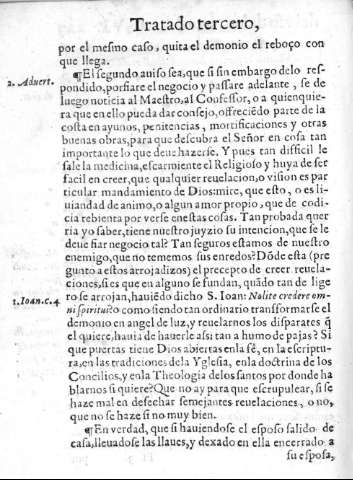 Tratado tercero,
por el mesmo caso, quita el demonio el reboço con
que llega.
2. Aduert.
¶El segundo auiso sea, que si sin embargo de lo res-
pondido, porfiare el negocio y passare adelante, se de
luego noticia al Maestro, al Confessor, o a quienquie-
ra que en ello pueda dar consejo, ofreciẽdo parte de la
costa en ayunos, penitencias, mortificaciones y otras
buenas obras, para que descubra el Señor en cosa tan
importante lo que deue hazerse. Y pues tan difficil le
sale la medicina, escarmiente el Religioso y huya de ser
facil en creer, que qualquier reuelacion, o vision es par
ticular mandamiento de Dios: mire, que esto, o es li-
uiandad de animo, o algun amor propio, que de codi-
cia rebienta por verse en estas cosas. Tan probada quer
ria yo saber, tiene nuestro juyzio su intencion, que se le
deue fiar negocio tal? Tan seguros estamos de nuestro
enemigo, que no tememos sus enredos? Dõde esta (pre
gunto a estos arrojadizos) el precepto de creer reuela-
ciones, si es que en alguno se fundan, quãdo tan de lige
1. Ioan. c. 4
ro se arrojan, hauiẽdo dicho S. Ioan: Nolite credere om-
ni spiritui? o como siendo tan ordinario transformarse el
demonio en angel de luz, y reuelarnos los disparates q̃
el quiere, hauia de hauerle assi tan a humo de pajas? Si
que puertas tiene Dios abiertas en la fè, en la escriptu-
ra, en las tradiciones de la Yglesia, en la doctrina de los
Concilios, y en la Theologia de los santos por donde ha
blarnos si quiere? Que no ay para que escrupulear, si se
haze mal en defechar semejantes reuelaciones, o no,
que no se haze si no muy bien.
¶En verdad, que si hauiendose el esposo salido de
casa, lleuadose las llaues, y dexado en ella encerrado a
su esposa,